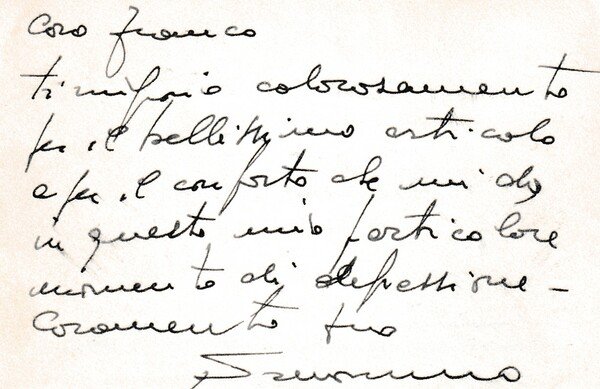 Caro Franco
ti ringrazio calorosamente
per il bellissimo articolo
e per il conforto che mi dà
in questo mio particolare
momento di depressione -
Caramente tuo